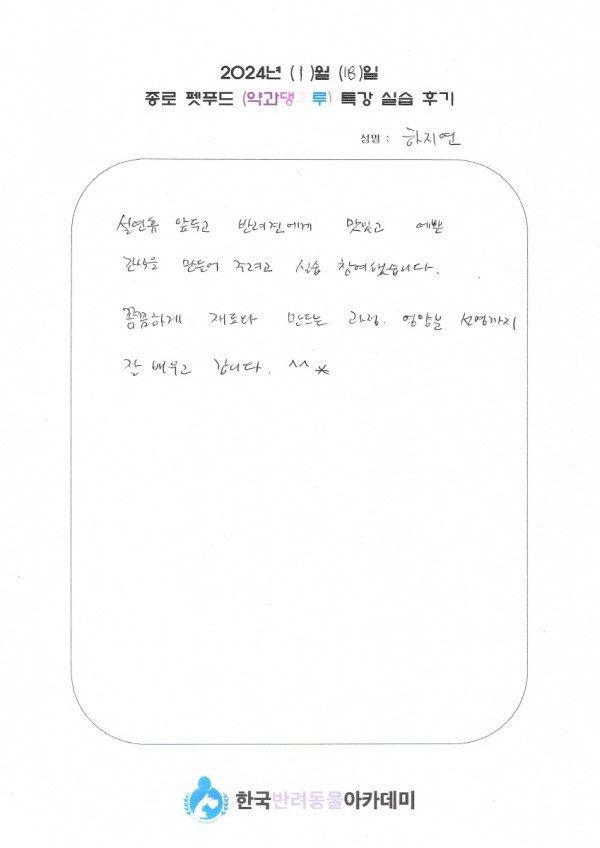 2024년 (1)월 (18)일
종로 펫푸드 (약과댕푸루) 특강 실습 후기
성명 : 하지연
설연휴 앞두고 반려견에게 맛있고 예쁜
간식을 만들어 주려고 실습 참여했습니다.
꼼꼼하게 재료와 만드는 과정. 영양분 설명까지
잘 배우고 갑니다. ^^*
한국반려동물아카데미